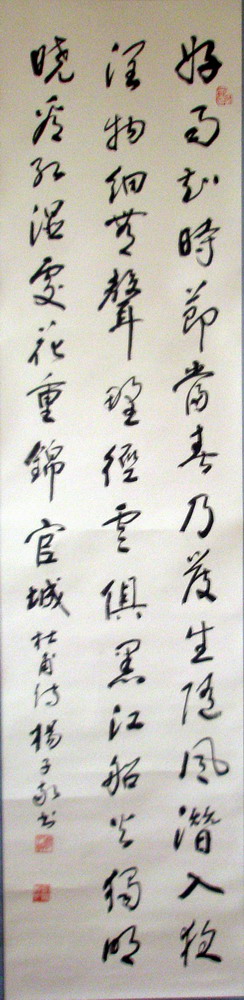 好雨知時節當春乃發生隨風潛入夜
潤物細無聲野徑雲俱黑江船火獨明
曉看紅濕處花重錦官城杜甫詩楊子書